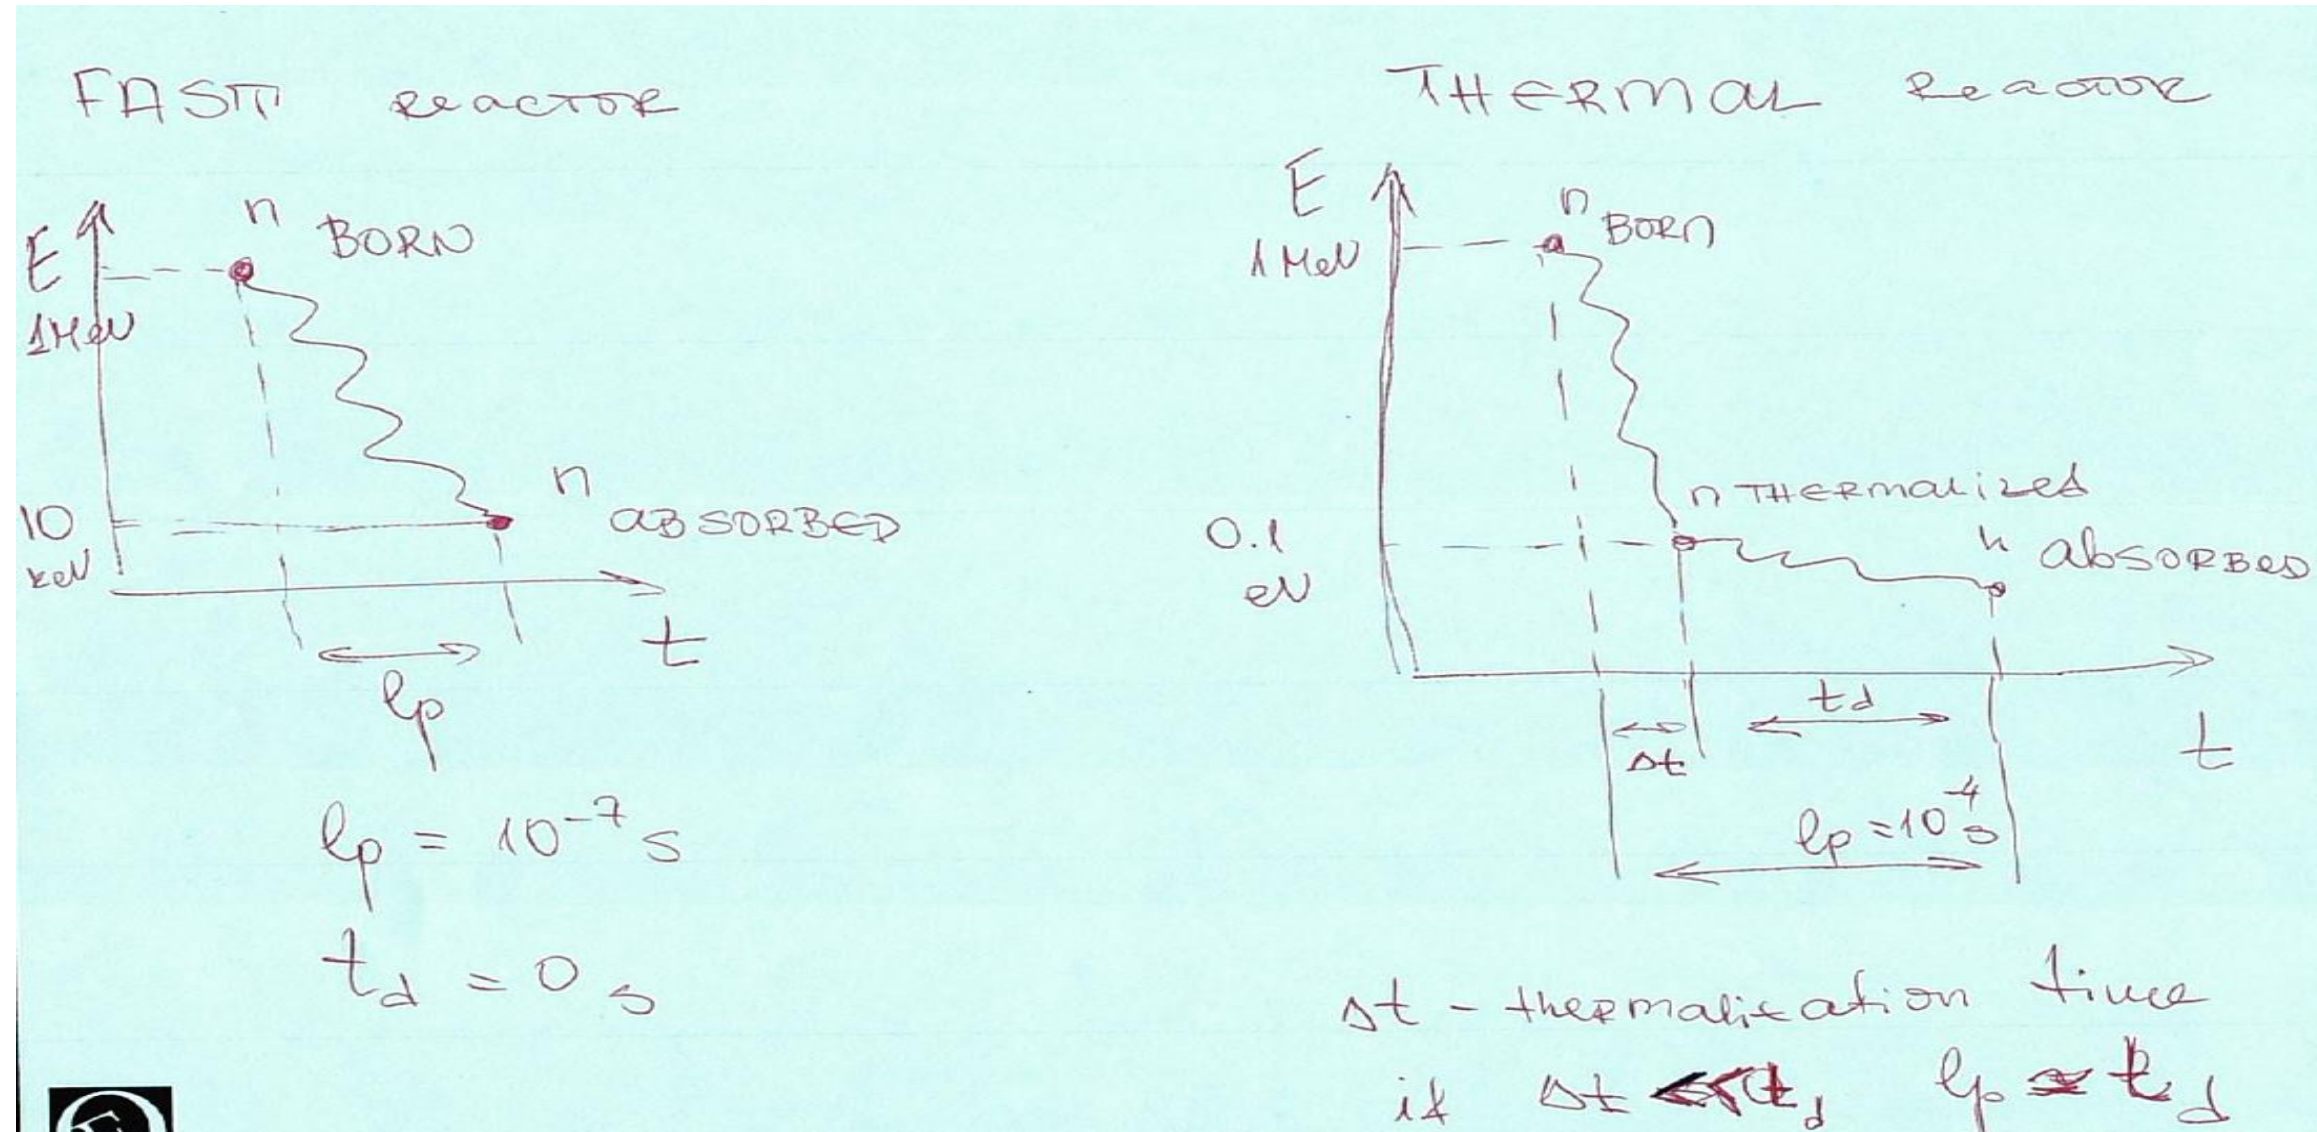 FAST reactor
E
1MeV
n BORN
10 keV
n ABSORBED
t
lp
lp = 10⁻⁷ s
td = 0 s
THERMAL Reactor
E
1 MeV
n BORN
n THERMALized
0.1 eV
n absorbed
td
Δt
t
lp = 10⁻⁴ s
Δt - thermalization time
if Δt << td lp ≃ td